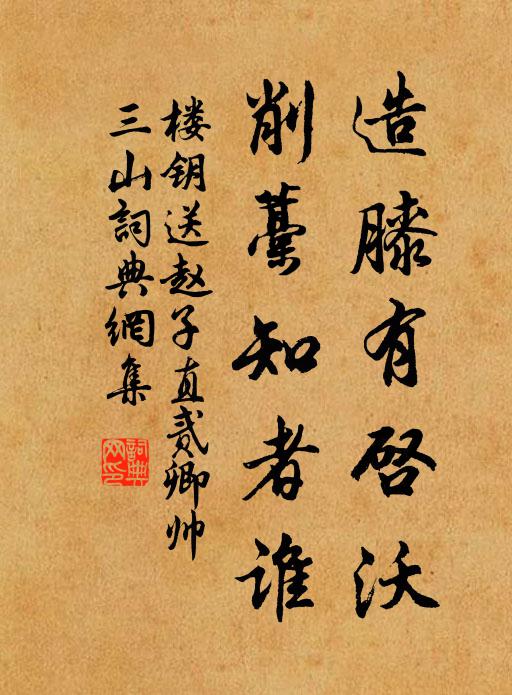 造膝有启沃
削藁知者谁
楼钥送赵子直贰卿帅
三山詞典網集
詞典
网印